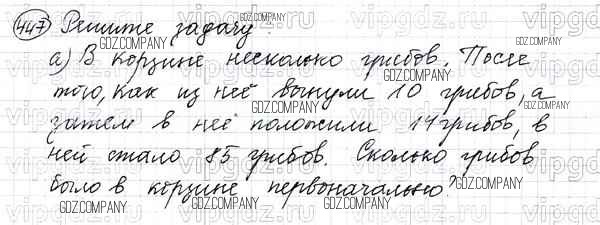 447 Решите задачу:
а) В корзине несколько грибов. После
того, как из неё вынули 10 грибов, а
затем в неё положили 14 грибов, в
ней стало 85 грибов. Сколько грибов
было в корзине первоначально?